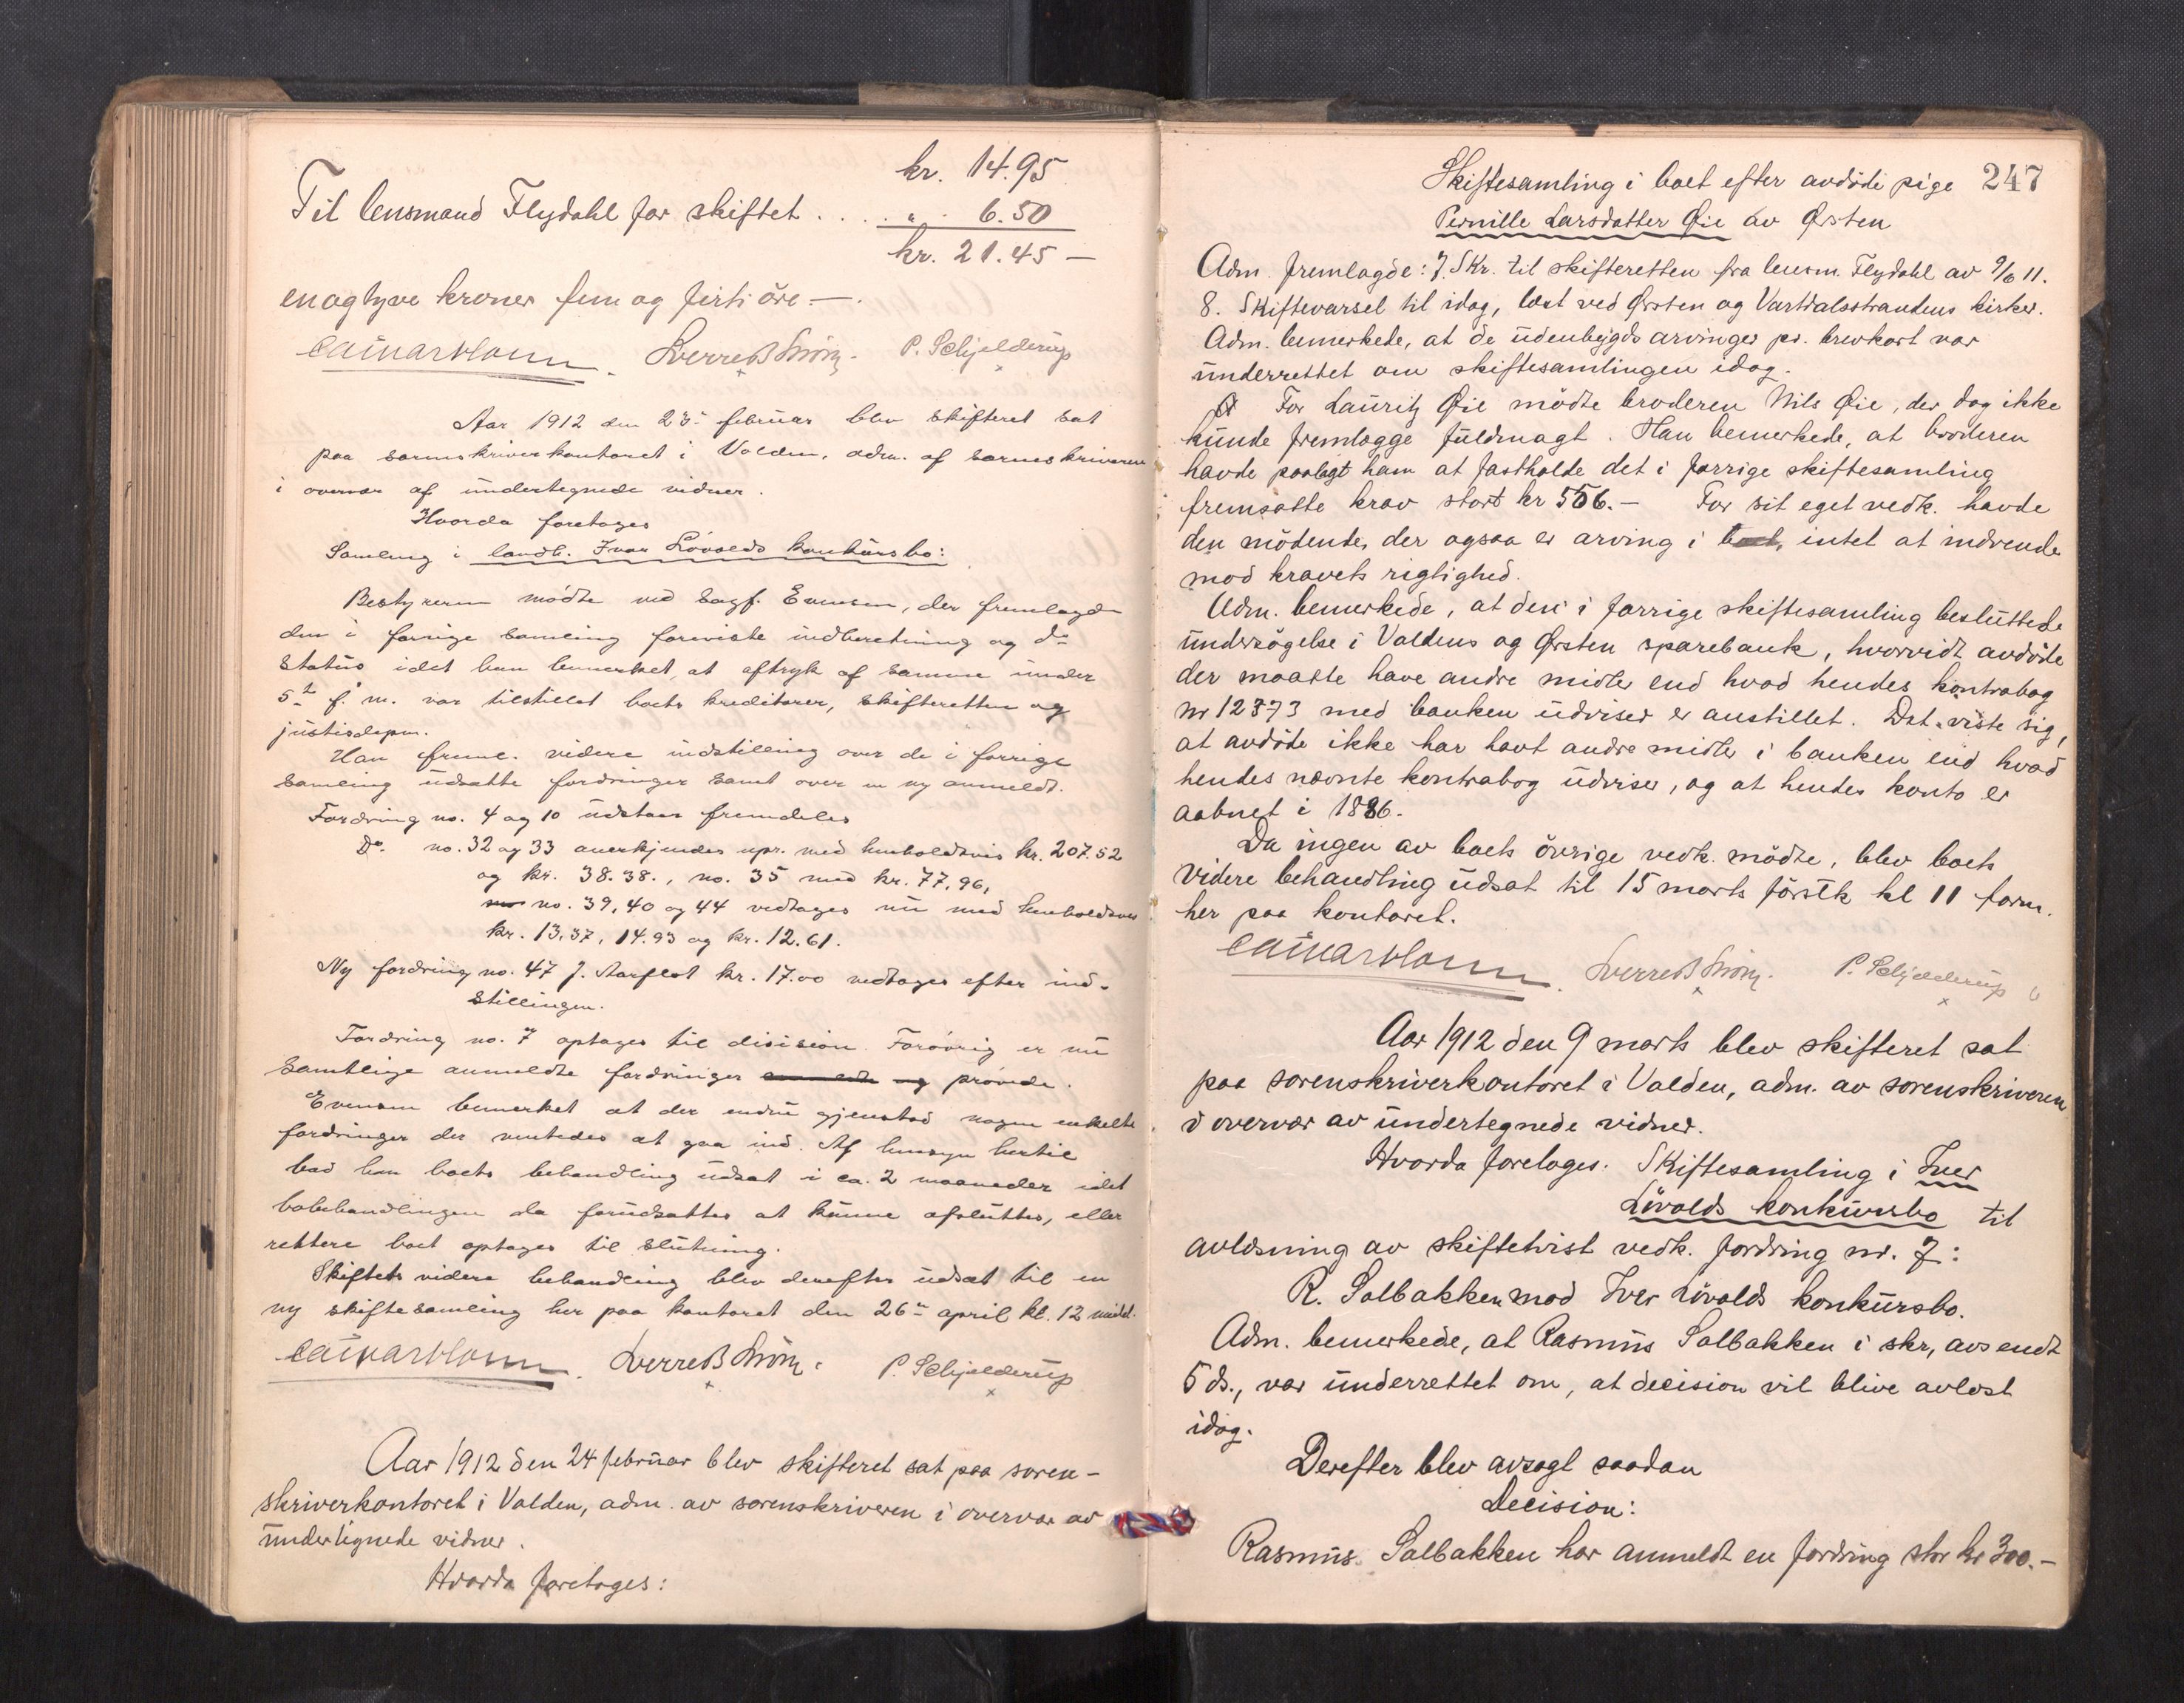 kr. 14.95
Til lensmand Flydahl for skiftet . . . . " . 6.50
kr. 21.45 —
enogtyve kroner fem og firti öre —.
Sverre B Ström. P. Schjelderup
Aar 1912 den 23. februar blev skifteret sat
paa sorenskriverkontoret i Volden, adm. af sorenskriveren
i overvær af undertegnede vidner.
Hvorda foretages
Samling i landh. Ivar Lövolds konkursbo:
Bestyreren mödte ved sagf. Evensen, der fremlagde
den i forrige samling foreviste indberetning og do
status idet han bemerket, at aftryk af samme under
5te f. m. var tilstillet boets kreditorer, skifteretten og
justisdepm.
Han freml. videre indstilling over de i forrige
samling udsatte fordringer samt over en ny anmeldt.
Fordring no. 4 og 10 udstaar fremdeles
Do. no. 32 og 33 anerkjendes upr. med henholdsvis kr. 207.52
og kr. 38.38., no. 35 med kr. 77,96,
no. 39, 40 og 44 vedtages nu med henholdsvis
kr. 13,37, 14.93 og kr. 12.61.
Ny fordring no. 47 J. Aarflot kr. 17.00 vedtages efter ind-
stillingen.
Fordring no. 7 optages til disision. Forövrig er nu
samtlige anmeldte fordringer prövede.
Evensen bemerket at der endnu gjenstod nogen enkelte
fordringer der ventedes at gaa ind. Af hensyn hertil
bad han boets behandling udsat i ca. 2 maaneder idet
bobehandlingen da forudsattes at kunne afsluttes, eller
rettere boet optages til slutning.
Skiftets videre behandling blev derefter udsat til en
ny skiftesamling her paa kontoret den 26de april kl. 12 midd.
Sverre B Ström. P. Schjelderup
Aar 1912 den 24 februar blev skifteret sat paa soren-
skriverkontoret i Volden, adm. av sorenskriveren i overvær av
undertegnede vidner.
Hvorda foretages:
247
Skiftesamling i boet efter avdöde pige
Pernille Larsdatter Øie av Ørsten
Adm. fremlagde: 7. Skr. til skifteretten fra lensm. Flydahl av 9/6 11.
8. Skiftevarsel til idag, læst ved Ørsten og Vartdalsstrandens kirker.
Adm. bemerkede, at de udenbygds arvinger pr. brevkort var
underrettet om skiftesamlingen idag.
For Lauritz Øie mödte broderen Nils Øie, der dog ikke
kunde fremlægge fuldmagt. Han bemerkede, at broderen
havde paalagt ham at fastholde det i forrige skiftesamling
fremsatte krav stort kr 556.— For sit eget vedk. havde
den mödende, der ogsaa er arving i boet, intet at indvende
mod kravets rigtighed.
Adm. bemerkede, at den i forrige skiftesamling besluttede
undersögelse i Voldens og Ørsten sparebank, hvorvidt avdöde
der maatte have andre midler end hvad hendes kontrabog
nr 12373 med banken udviser er anstillet. Det viste sig,
at avdöde ikke har havt andre midler i banken end hvad
hendes nævnte kontrabog udviser, og at hendes konto er
aabnet i 1886.
Da ingen av boets övrige vedk. mödte, blev boets
videre behandling udsat til 15 marts förstk kl 11 form.
her paa kontoret.
Sverre B Ström. P. Schjelderup
Aar 1912 den 9 marts blev skifteret sat
paa sorenskriverkontoret i Volden, adm. av sorenskriveren
i overvær av undertegnede vidner.
Hvorda foretoges. Skiftesamling i Iver
Lövolds konkursbo til
avlæsning av skiftetvist vedk. fordring nr. 7:
R. Solbakken mod Iver Lövolds konkursbo.
Adm. bemerkede, at Rasmus Solbakken i skr, avsendt
5 ds., var underrettet om, at decision vil blive avlæst
idag.
Derefter blev avsagt saadan
Decision:
Rasmus Solbakken har anmeldt en fordring stor kr 300.—